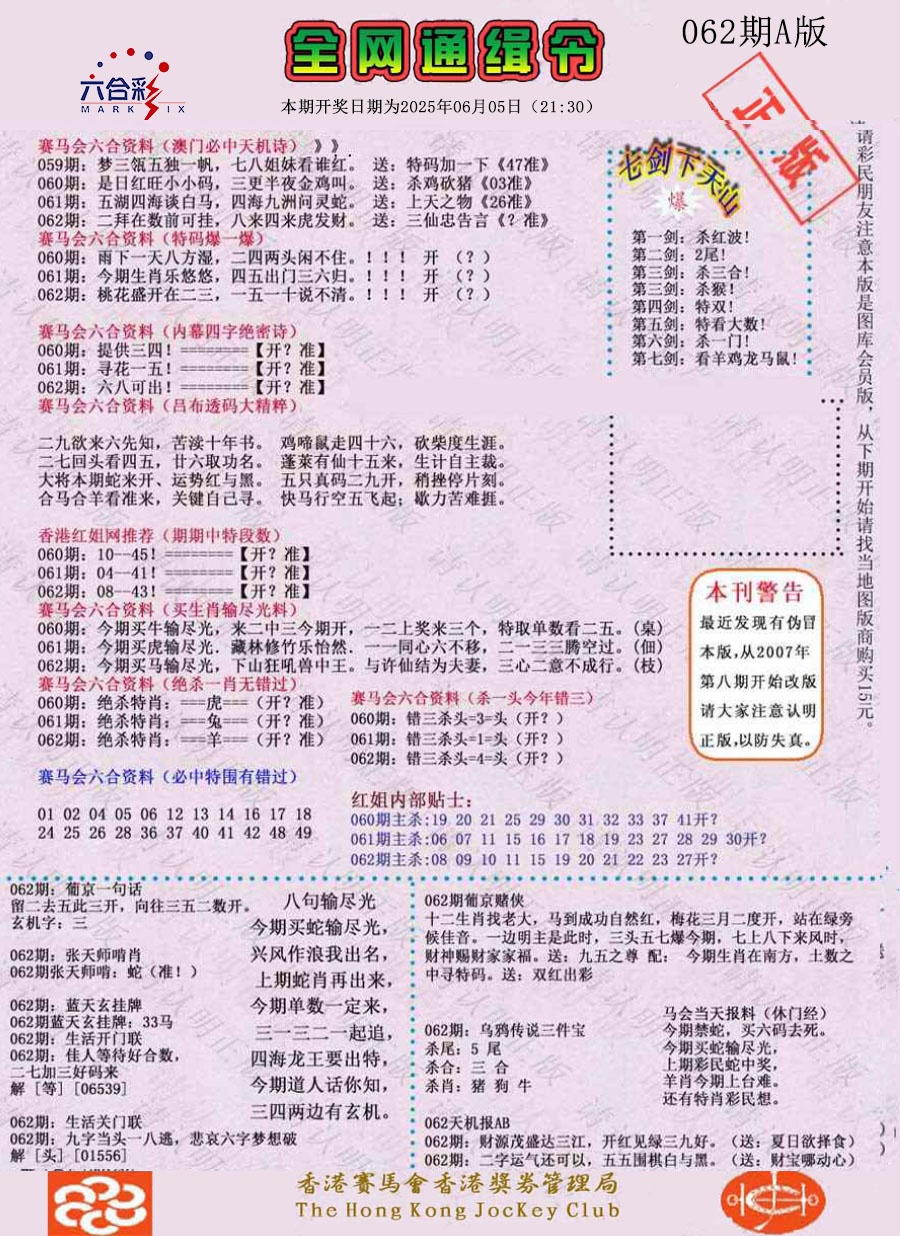 全网通缉令
062期A版
六合彩
MARK SIX
本期开奖日期为2025年06月05日（21:30）
正版
赛马会六合资料（澳门必中天机诗）》》
059期：梦三瓴五独一帆，七八姐妹看谁红。 送：特码加一下《47准》
060期：是日红旺小小码，三更半夜金鸡叫。 送：杀鸡砍猪《03准》
061期：五湖四海谈白马，四海九洲问灵蛇。 送：上天之物《26准》
062期：二拜在数前可挂，八来四来虎发财。 送：三仙忠告言《？准》
赛马会六合资料（特码爆一爆）
060期：雨下一天八方湿，二四两头闲不住。！！！ 开 （？）
061期：今期生肖乐悠悠，四五出门三六归。！！！ 开 （？）
062期：桃花盛开在二三，一五一十说不清。！！！ 开 （？）
赛马会六合资料（内幕四字绝密诗）
060期：提供三四！========【开？准】
061期：寻花一五！========【开？准】
062期：六八可出！========【开？准】
赛马会六合资料（吕布透码大精粹）
二九欲来六先知，苦渎十年书。 鸡啼鼠走四十六，砍柴度生涯。
二七回头看四五，廿六取功名。 蓬莱有仙十五来，生计自主裁。
大将本期蛇来开、运势红与黑。 五只真码二九开，稍挫停片刻。
合马合羊看准来，关键自己寻。 快马行空五飞起；歇力苦难捱。
香港红姐网推荐（期期中特段数）
060期：10--45！========【开？准】
061期：04--41！========【开？准】
062期：08--43！========【开？准】
赛马会六合资料（买生肖输尽光料）
060期：今期买牛输尽光，来二中三今期开，一二上奖来三个，特取单数看二五。(桌)
061期：今期买虎输尽光．藏林修竹乐怡然．一一同心六不移，二一三三腾空过。(佃)
062期：今期买马输尽光，下山狂吼兽中王。与许仙结为夫妻，三心二意不成行。(枝)
赛马会六合资料（绝杀一肖无错过）
060期：绝杀特肖：===虎===（开？准）
061期：绝杀特肖：===兔===（开？准）
062期：绝杀特肖：===羊===（开？准）
赛马会六合资料（杀一头今年错三）
060期：错三杀头=3=头（开？）
061期：错三杀头=1=头（开？）
062期：错三杀头=4=头（开？）
赛马会六合资料（必中特围有错过）
01 02 04 05 06 12 13 14 16 17 18
24 25 26 28 36 37 40 41 42 48 49
红姐内部贴士：
060期主杀:19 20 21 25 29 30 31 32 33 37 41开?
061期主杀:06 07 11 15 16 17 18 19 23 27 28 29 30开?
062期主杀:08 09 10 11 15 19 20 21 22 23 27开?
七剑下天山
爆
第一剑：杀红波！
第二剑：2尾！
第三剑：杀三合！
第三剑：杀猴！
第四剑：特双！
第五剑：特看大数！
第六剑：杀一门！
第七剑：看羊鸡龙马鼠！
请彩民朋友注意本版是图库会员版，从下期开始请找当地图版商购买15元。
本刊警告
最近发现有伪冒
本版,从2007年
第八期开始改版
请大家注意认明
正版,以防失真。
062期：葡京一句话
留二去五此三开，向往三五二数开。
玄机字：三
062期：张天师啃肖
062期张天师啃：蛇（准！）
062期：蓝天玄挂牌
062期蓝天玄挂牌：33马
062期：生活开门联
062期：佳人等待好合数，
二七加三好码来
解 [等] [06539]
062期：生活关门联
062期：九字当头一八逃，悲哀六字梦想破
解 [头] [01556]
八句输尽光
今期买蛇输尽光，
兴风作浪我出名，
上期蛇肖再出来，
今期单数一定来，
三一三二一起追，
四海龙王要出特，
今期道人话你知，
三四两边有玄机。
062期葡京赌侠
十二生肖找老大，马到成功自然红，梅花三月二度开，站在绿旁
候佳音。一边明主是此时，三头五七爆今期，七上八下来风时，
财神赐财家家福。送：九五之尊 配： 今期生肖在南方，土数之
中寻特码。送：双红出彩
062期：乌鸦传说三件宝
杀尾：5 尾
杀合：三 合
杀肖：猪 狗 牛
马会当天报料（休门经）
今期禁蛇，买六码去死。
今期买蛇输尽光，
上期彩民蛇中奖，
羊肖今期上台难。
还有特肖彩民想。
062天机报AB
062期：财源茂盛达三江，开红见绿三九好。（送：夏日欲择食）
062期：二字运气还可以，五五围棋白与黑。（送：财宝哪动心）
香港賽馬會香港獎券管理局
The Hong Kong JocKey Club